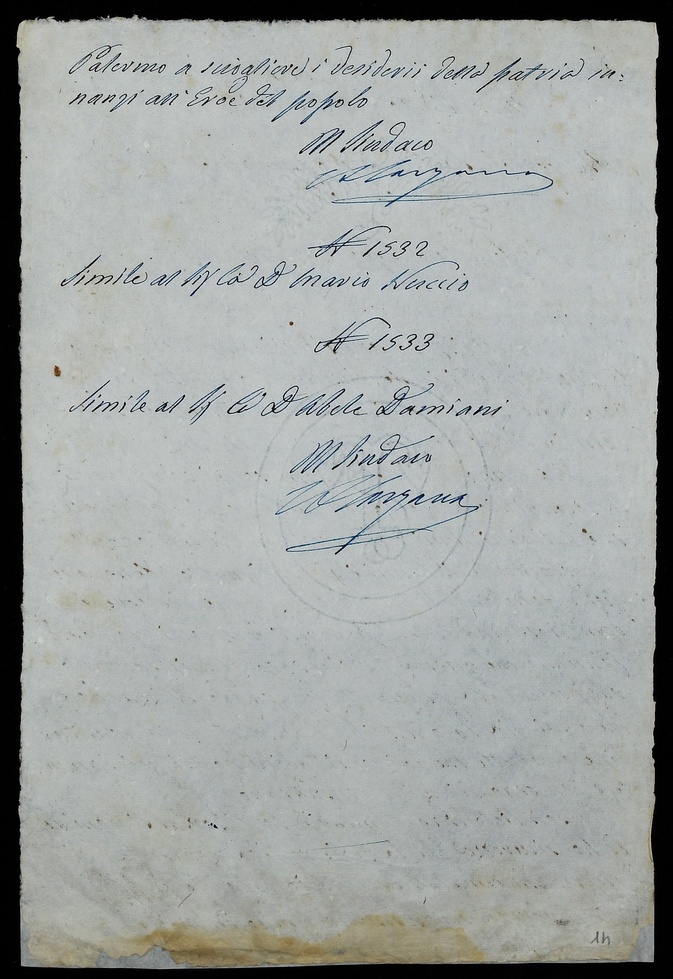 Palermo a sciogliere i desiderii della patria in=
nanzi all'Eroe del popolo
Il Sindaco
N 1532
Simile al D Mario Nuccio
N 1533
Simile al D Abele Damiani
Il Sindaco
14